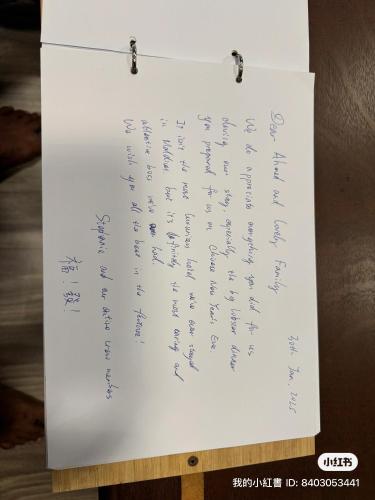 30th. Jan. 2025
Dear Ahmed and Lovely Family
We do appreciate everything you did for us
during our stay, especially the big lobster dinner
you prepared for us on Chinese New Year's Eve
It isn't the most luxurious hotel we've ever stayed
in Maldives, but it's definitely the most caring and
attentive boss we've had.
We wish you all the best in the future!
Stephanie and our entire crew members
福！發！
小红书
我的小紅書 ID: 8403053441